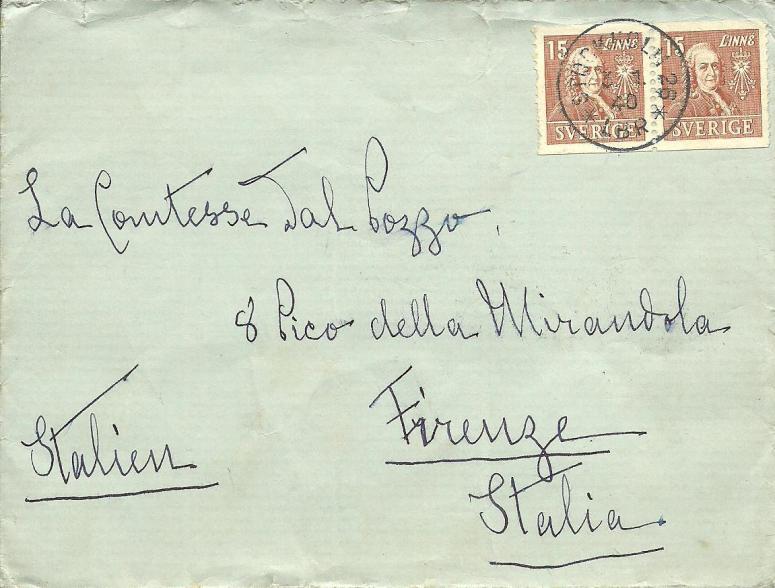 15 LINNÉ 15 LINNÉ
STOCKHOLM 28
40
LBR
SVERIGE SVERIGE
La Comtesse Dal Pozzo.
8 Pico della Mirandola
Firenze
Italien
Italia.